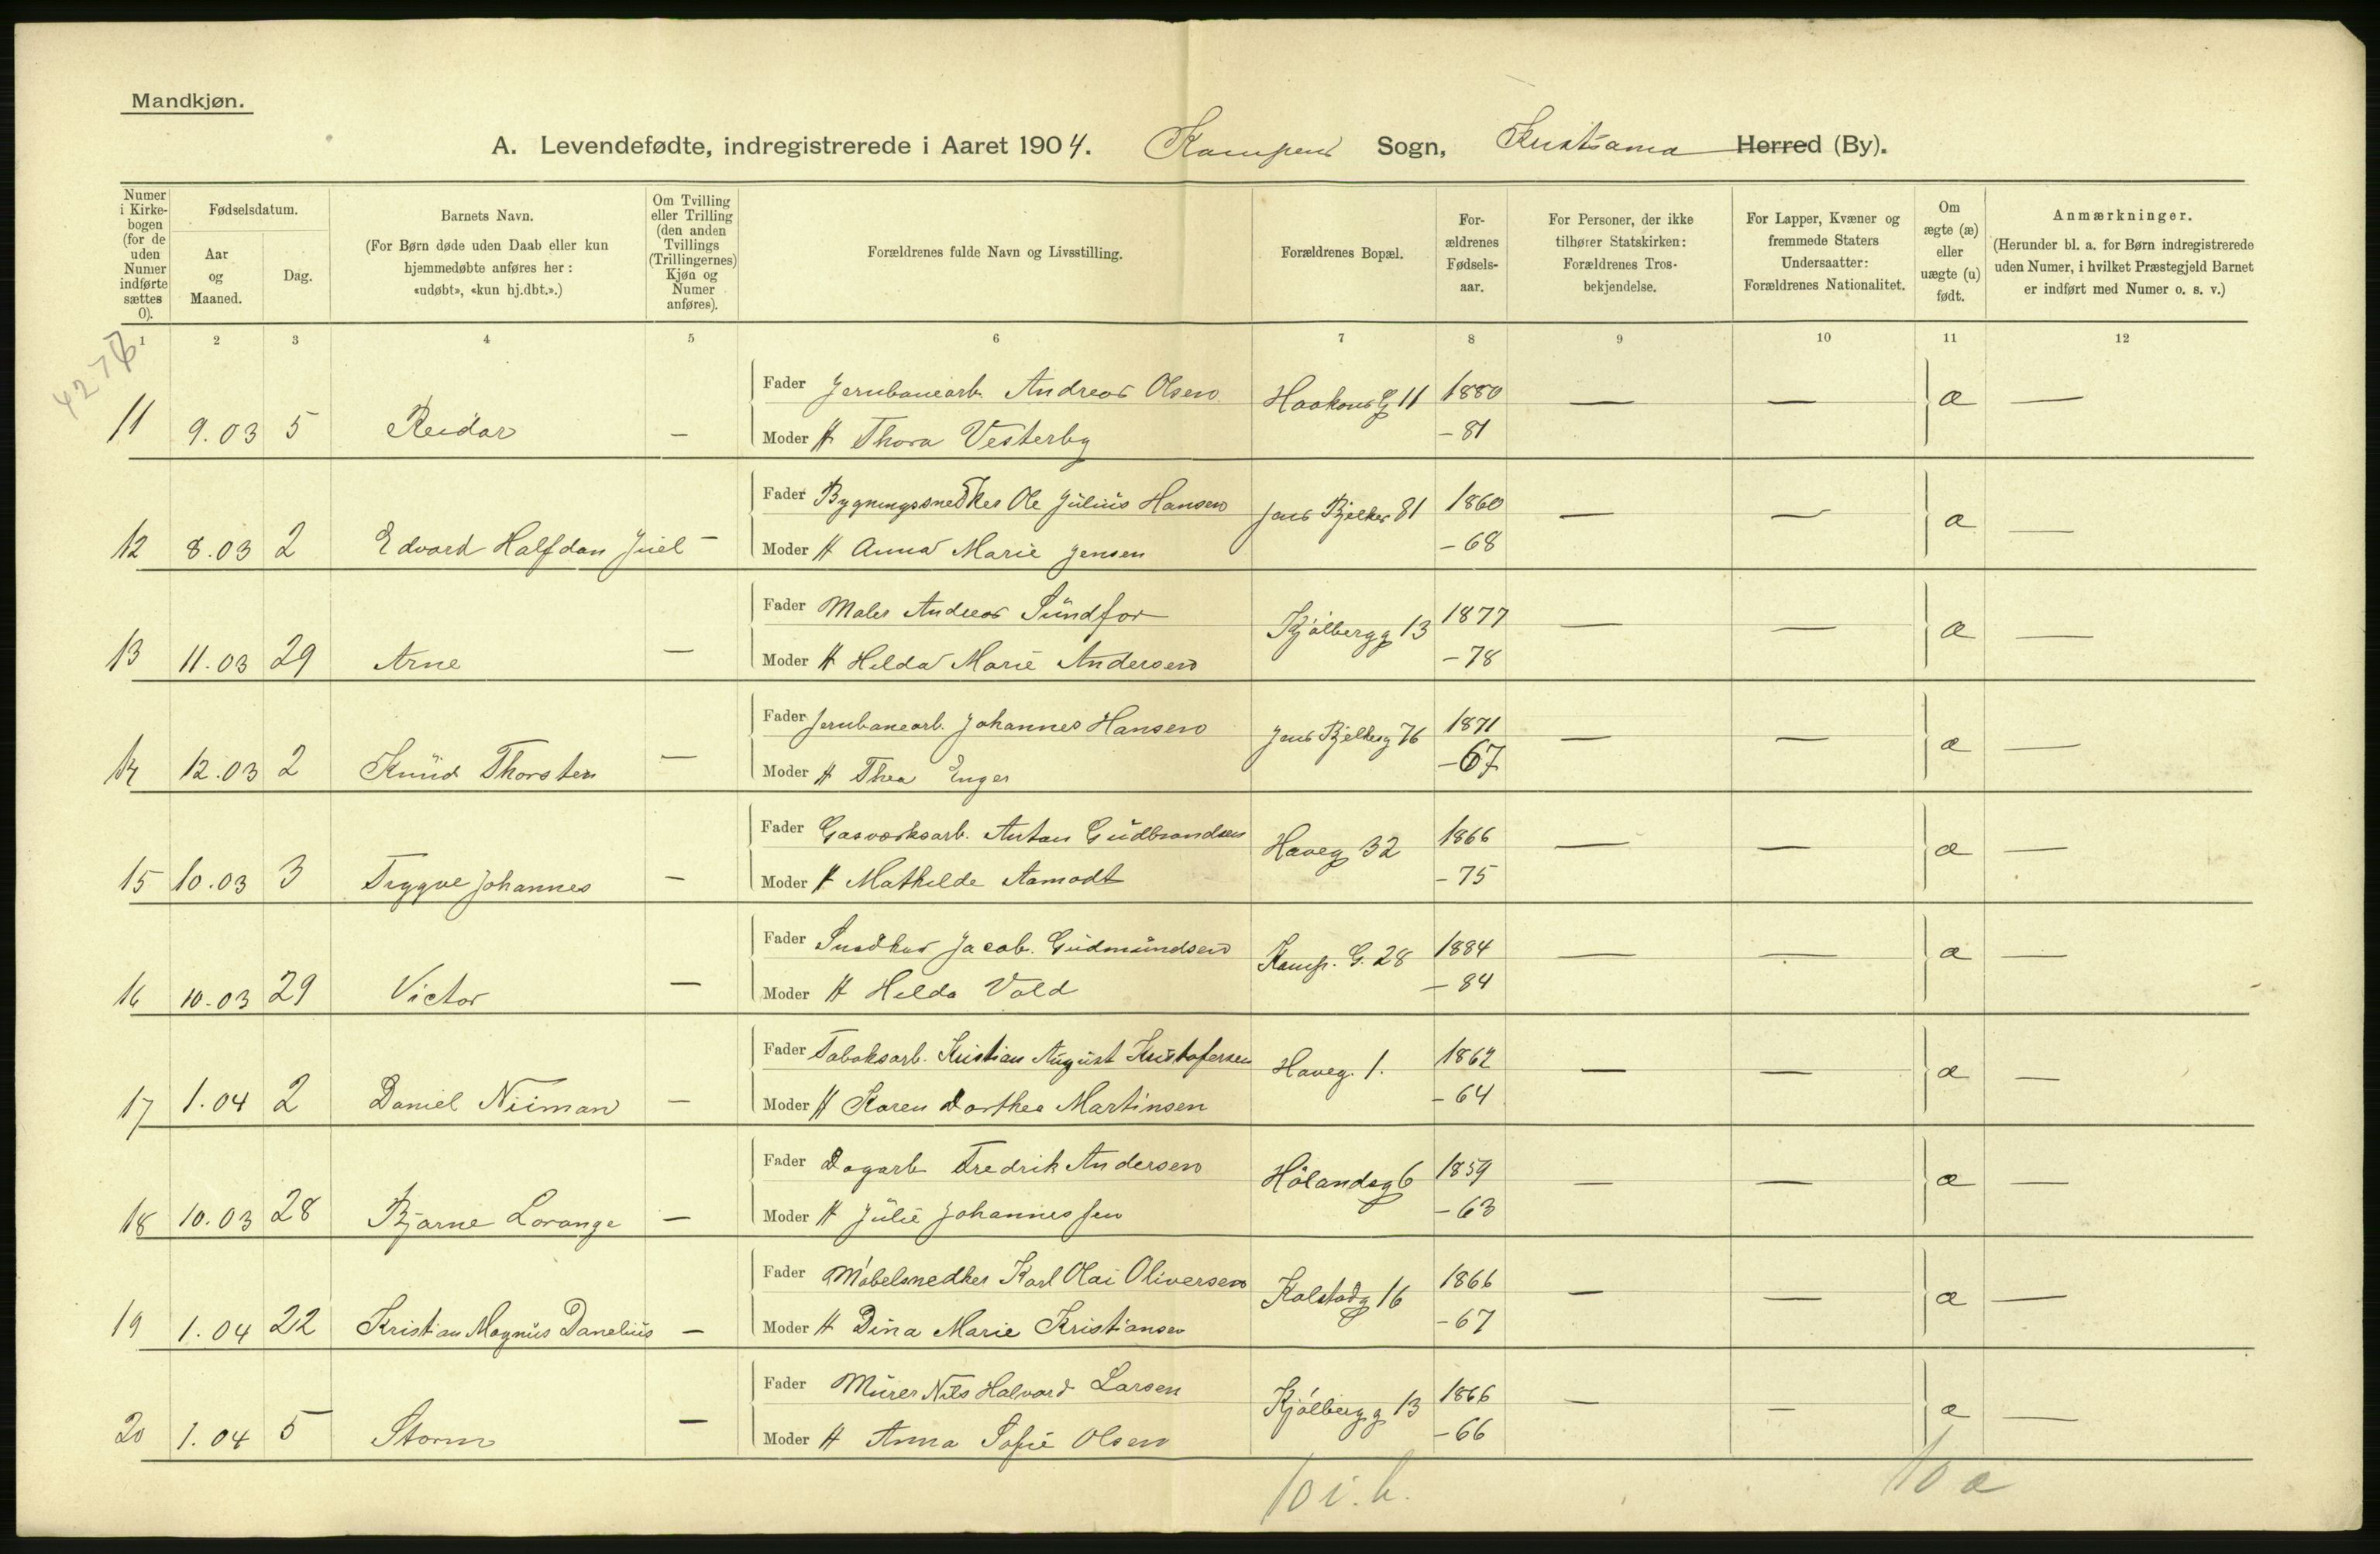 Mandkjøn.
A. Levendefødte, indregistrerede i Aaret 1904. Kampens Sogn, Kristiania Herred (By).
Numer i Kirkebogen (for de uden Numer indførte sættes 0).
Fødselsdatum.
Aar og Maaned.
Dag.
Barnets Navn.
(For Børn døde uden Daab eller kun hjemmedøbte anføres her: «udøbt», «kun hj.dbt.».)
Om Tvilling eller Trilling (den anden Tvillings (Trillingernes) Kjøn og Numer anføres).
Forældrenes fulde Navn og Livsstilling.
Forældrenes Bopæl.
Forældrenes Fødselsaar.
For Personer, der ikke tilhører Statskirken: Forældrenes Trosbekjendelse.
For Lapper, Kvæner og fremmede Staters Undersaatter: Forældrenes Nationalitet.
Om ægte (æ) eller uægte (u) født.
Anmærkninger.
(Herunder bl. a. for Børn indregistrerede uden Numer, i hvilket Præstegjeld Barnet er indført med Numer o. s. v.)
1 2 3 4 5 6 7 8 9 10 11 12
Fader Jernbanearb. Andreas Olsen Haakons G 11 1880 — — æ —
11 9.03 5 Reidar — Moder H Thora Vesterby - 81
Fader Bygningssnedker Ole Julius Hansen Jens Bjelkes 81 1860 — — æ —
12 8.03 2 Edvard Halfdan Juel — Moder H Anna Marie Jensen - 68
Fader Maler Andreas Sundfor Kjølbergg 13 1877 — — æ —
13 11.03 29 Arne — Moder H Hilda Marie Andersen - 78
Fader Jernbanearb. Johannes Hansen Jens Bjelkesg 76 1871 — — æ —
14 12.03 2 Knud Thorsten — Moder H Thea Enger - 67
Fader Gasværksarb. Anton Gudbrandsen Haveg 32 1866 — — æ —
15 10.03 3 Trygve Johannes — Moder H Mathilde Aamodt - 75
Fader Snedker Jacob Gudmundsen Kamp. G. 28 1884 — — æ —
16 10.03 29 Victor — Moder H Hilda Vold - 84
Fader Tobaksarb. Kristian August Kristofersen Haveg. 1. 1862 — — æ —
17 1.04 2 Daniel Niiman — Moder H Karen Dorthea Martinsen - 64
Fader Dagarb Fredrik Andersen Hølandsg 6 1859 — — æ —
18 10.03 28 Bjarne Lorange — Moder H Julie Johannessen - 63
Fader Møbelsnedker Karl Olai Oliversen Kolstadg 16 1866 — — æ —
19 1.04 22 Kristian Magnus Danelius — Moder H Dina Marie Kristiansen - 67
Fader Murer Nils Halvard Larsen Kjølbergg 13 1866 — — æ —
20 1.04 5 Storm — Moder H Anna Sofie Olsen - 66
10 i.b. 10 æ